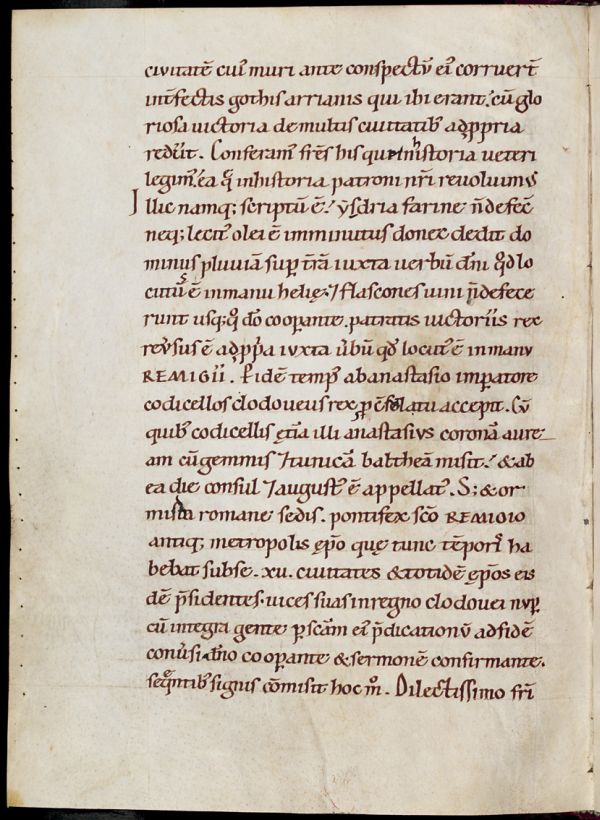 civitatē cui᷒ muri ante conspectū ei᷒ corruer̄t
int̄fectis gothis arrianis qui ibi erant. cū glo
riosa uictoria de multis ciuitatib; ad ꝓpria
rediit. Conferam᷒ fr̄es his que in historia ueteri
legim᷒. ea q̄ in historia patroni nr̄i reuoluim᷒
Illic namq; scriptū ē. ydria farine n̄ defec̄
neq; lecit᷒ olei ē imminutus donec dedit do
minus pluuiā sup t̄rā iuxta uerbū dn̄i qd̄ lo
cutus ē in manu helię. ⁊ flascones uini n̄ defece
runt usq; q̄ dō cooꝑante. patratis uictoriis rex
reu̓sus ē ad ꝓpͥa iuxta ūbū qd̄ locut᷒ ē in manu
REMIGII. Eidē temp̄r ab anastasio imꝑatore
codicellos clodoueus rex ꝓ cōsolatu accepit. Cū
quib; codicellis ętiā illi anastasius coronā aure
am cū gemmis ⁊ tunicā baltheā misit. & ab
ea die consul ⁊ august᷒ ē appellat᷒. S; & or
misda romane sedis. pontifex sc̄o REMIGIO
antiq; metropolis ep̄o quę tunc tēpori᷒ ha
bebat sub se .xu. ciuitates & totidē ep̄os eis
dē p̄sidentes. uices suas in regno clodouei nuꝑ
cū integra gente ꝑ scām ei᷒ p̄dicationū ad fidē
conu̓si dn̄o cooꝑante & sermonē confirmante.
seq̄ntib; signis cōmisit hoc m̊. Dilectissimo fr̄i